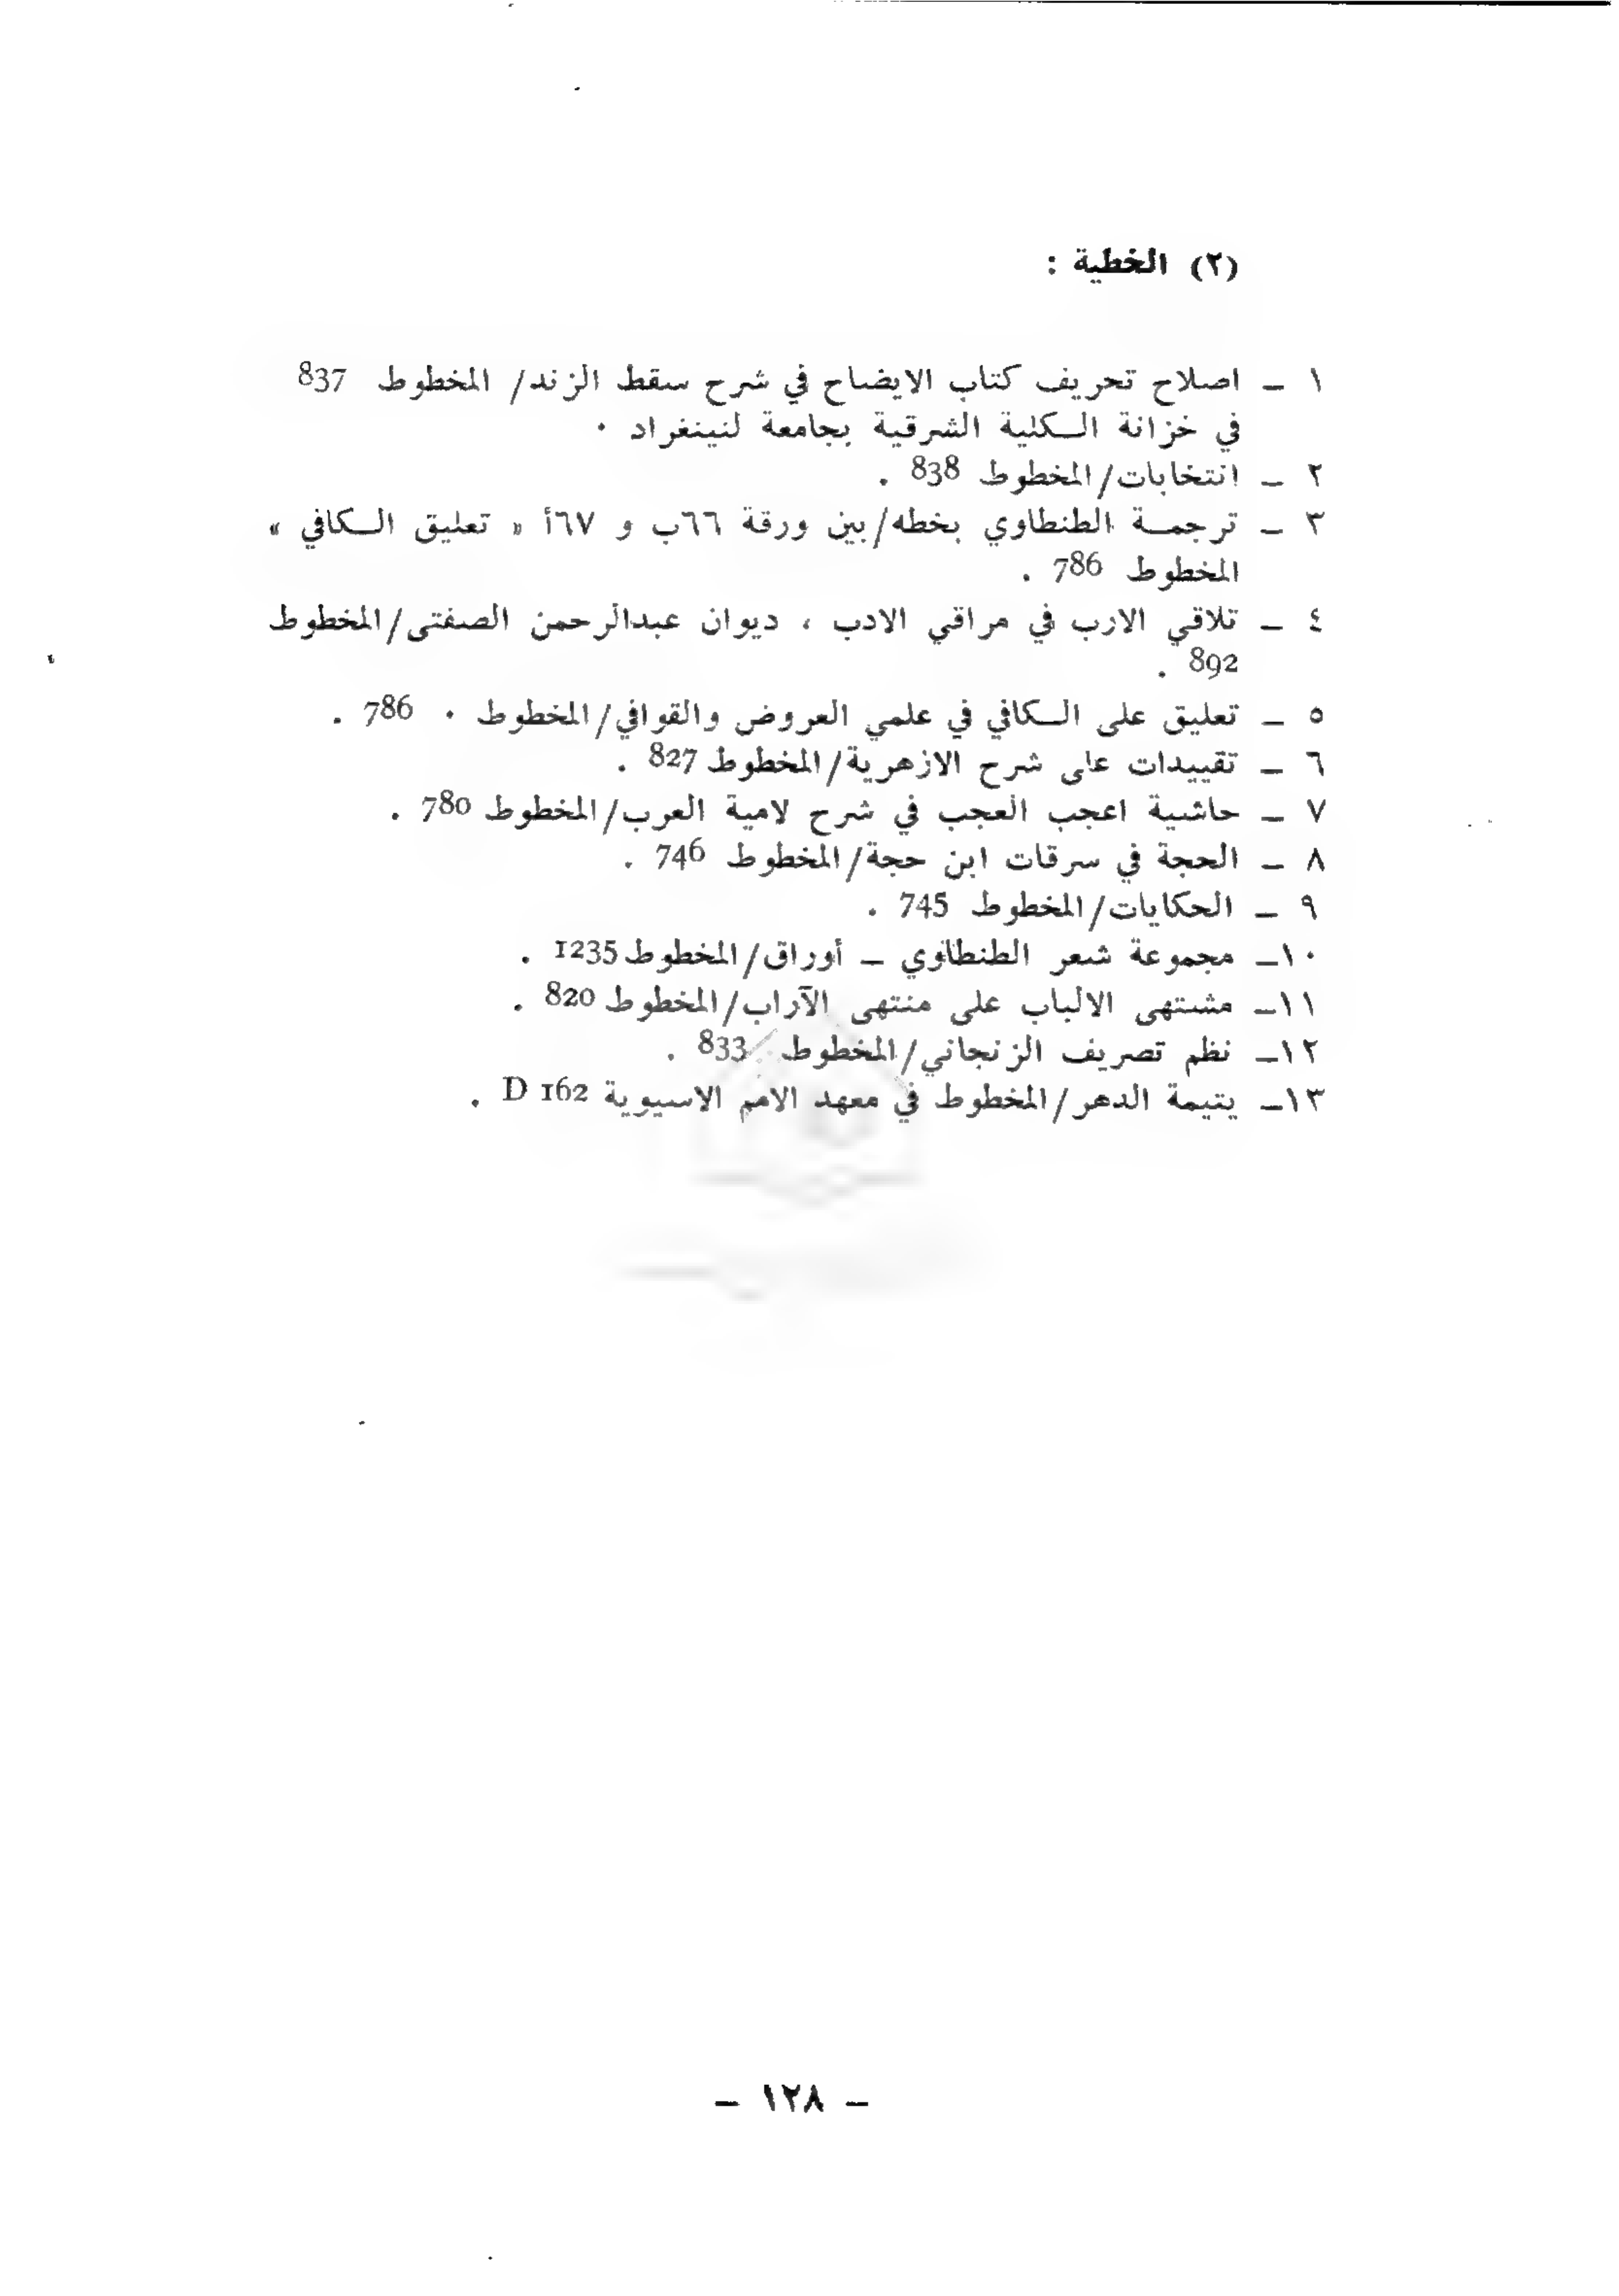 (٢) الخطية :
١ – اصلاح تحريف كتاب الايضاح في شرح سقط الزند/ المخطوط 837
في خزانة الكلية الشرقية بجامعة لنينغراد .
٢ – انتخابات/المخطوط 838 .
٣ – ترجمة الطنطاوي بخطه/بين ورقة ٦٦ب و ٦٧أ « تعليق الكافي »
المخطوط 786 .
٤ – تلاقي الارب في مراقي الادب ، ديوان عبدالرحمن الصفتى/المخطوط
892 .
٥ – تعليق على الكافي في علمي العروض والقوافي/المخطوط . 786 .
٦ – تقييدات على شرح الازهرية/المخطوط 827 .
٧ – حاشية اعجب العجب في شرح لامية العرب/المخطوط 780 .
٨ – الحجة في سرقات ابن حجة/المخطوط 746 .
٩ – الحكايات/المخطوط 745 .
١٠– مجموعة شعر الطنطاوي – أوراق/المخطوط 1235 .
١١– مشتهى الالباب على منتهى الآراب/المخطوط 820 .
١٢– نظم تصريف الزنجاني/المخطوط 833 .
١٣– يتيمة الدهر/المخطوط في معهد الامم الاسيوية D 162 .
– ١٢٨ –